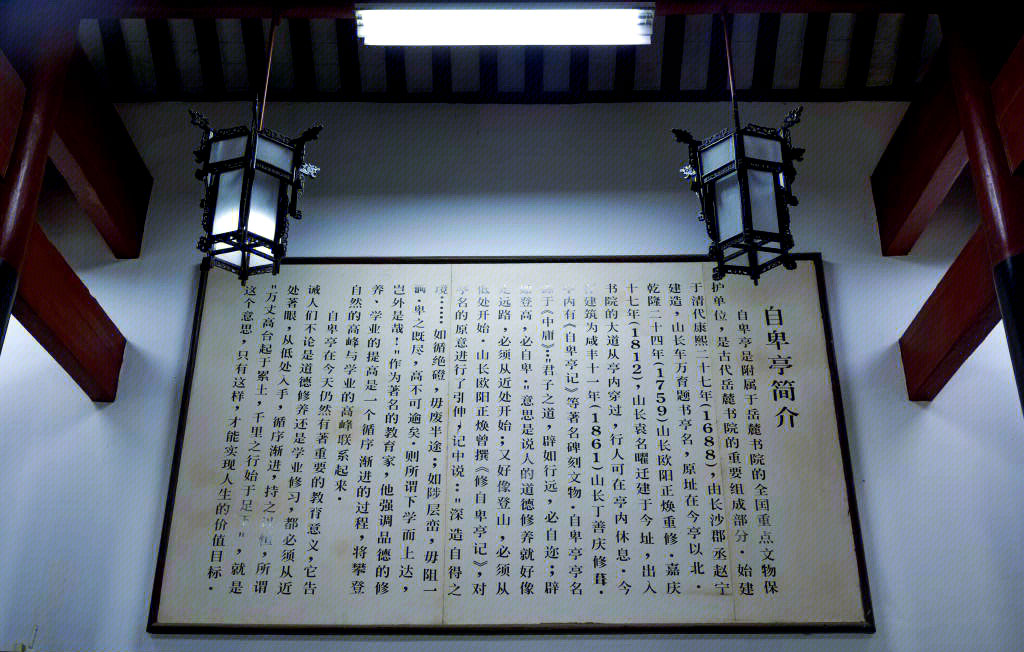 自卑亭简介
自卑亭是附属于岳麓书院的全国重点文物保
护单位，是古代岳麓书院的重要组成部分．始建
于清代康熙二十七年(1688)，由长沙郡丞赵宁
建造，山长车万育题书亭名，原址在今亭以北．
乾隆二十四年(1759)山长欧阳正焕重修．嘉庆
十七年(1812)，山长袁名曜迁建于今址，出入
书院的大道从亭内穿过，行人可在亭内休息．今
建筑为咸丰十一年(1861)山长丁善庆修葺．
亭内有《自卑亭记》等著名碑刻文物．自卑亭亭名
源于《中庸》："君子之道，辟如行远，必自迩；辟
如登高，必自卑．"意思是说人的道德修养就好像
走远路，必须从近处开始；又好像登山，必须从
低处开始．山长欧阳正焕曾撰《修自卑亭记》，对
亭名的原意进行了引伸，记中说："深造自得之
境……如循绝磴，毋废半途；如陟层峦，毋阻一
．卑之既尽，高不可逾矣．则所谓下学而上达，
岂外是哉！"作为著名的教育家，他强调品德的修
养、学业的提高是一个循序渐进的过程，将攀登
自然的高峰与学业的高峰联系起来．
自卑亭在今天仍然有着重要的教育意义，它告
诫人们不论是道德修养还是学业修习，都必须从近
处着眼，从低处入手，循序渐进，持之以恒，所谓
"万丈高台起于累土，千里之行始于足下"，就是
这个意思，只有这样，才能实现人生的价值目标．